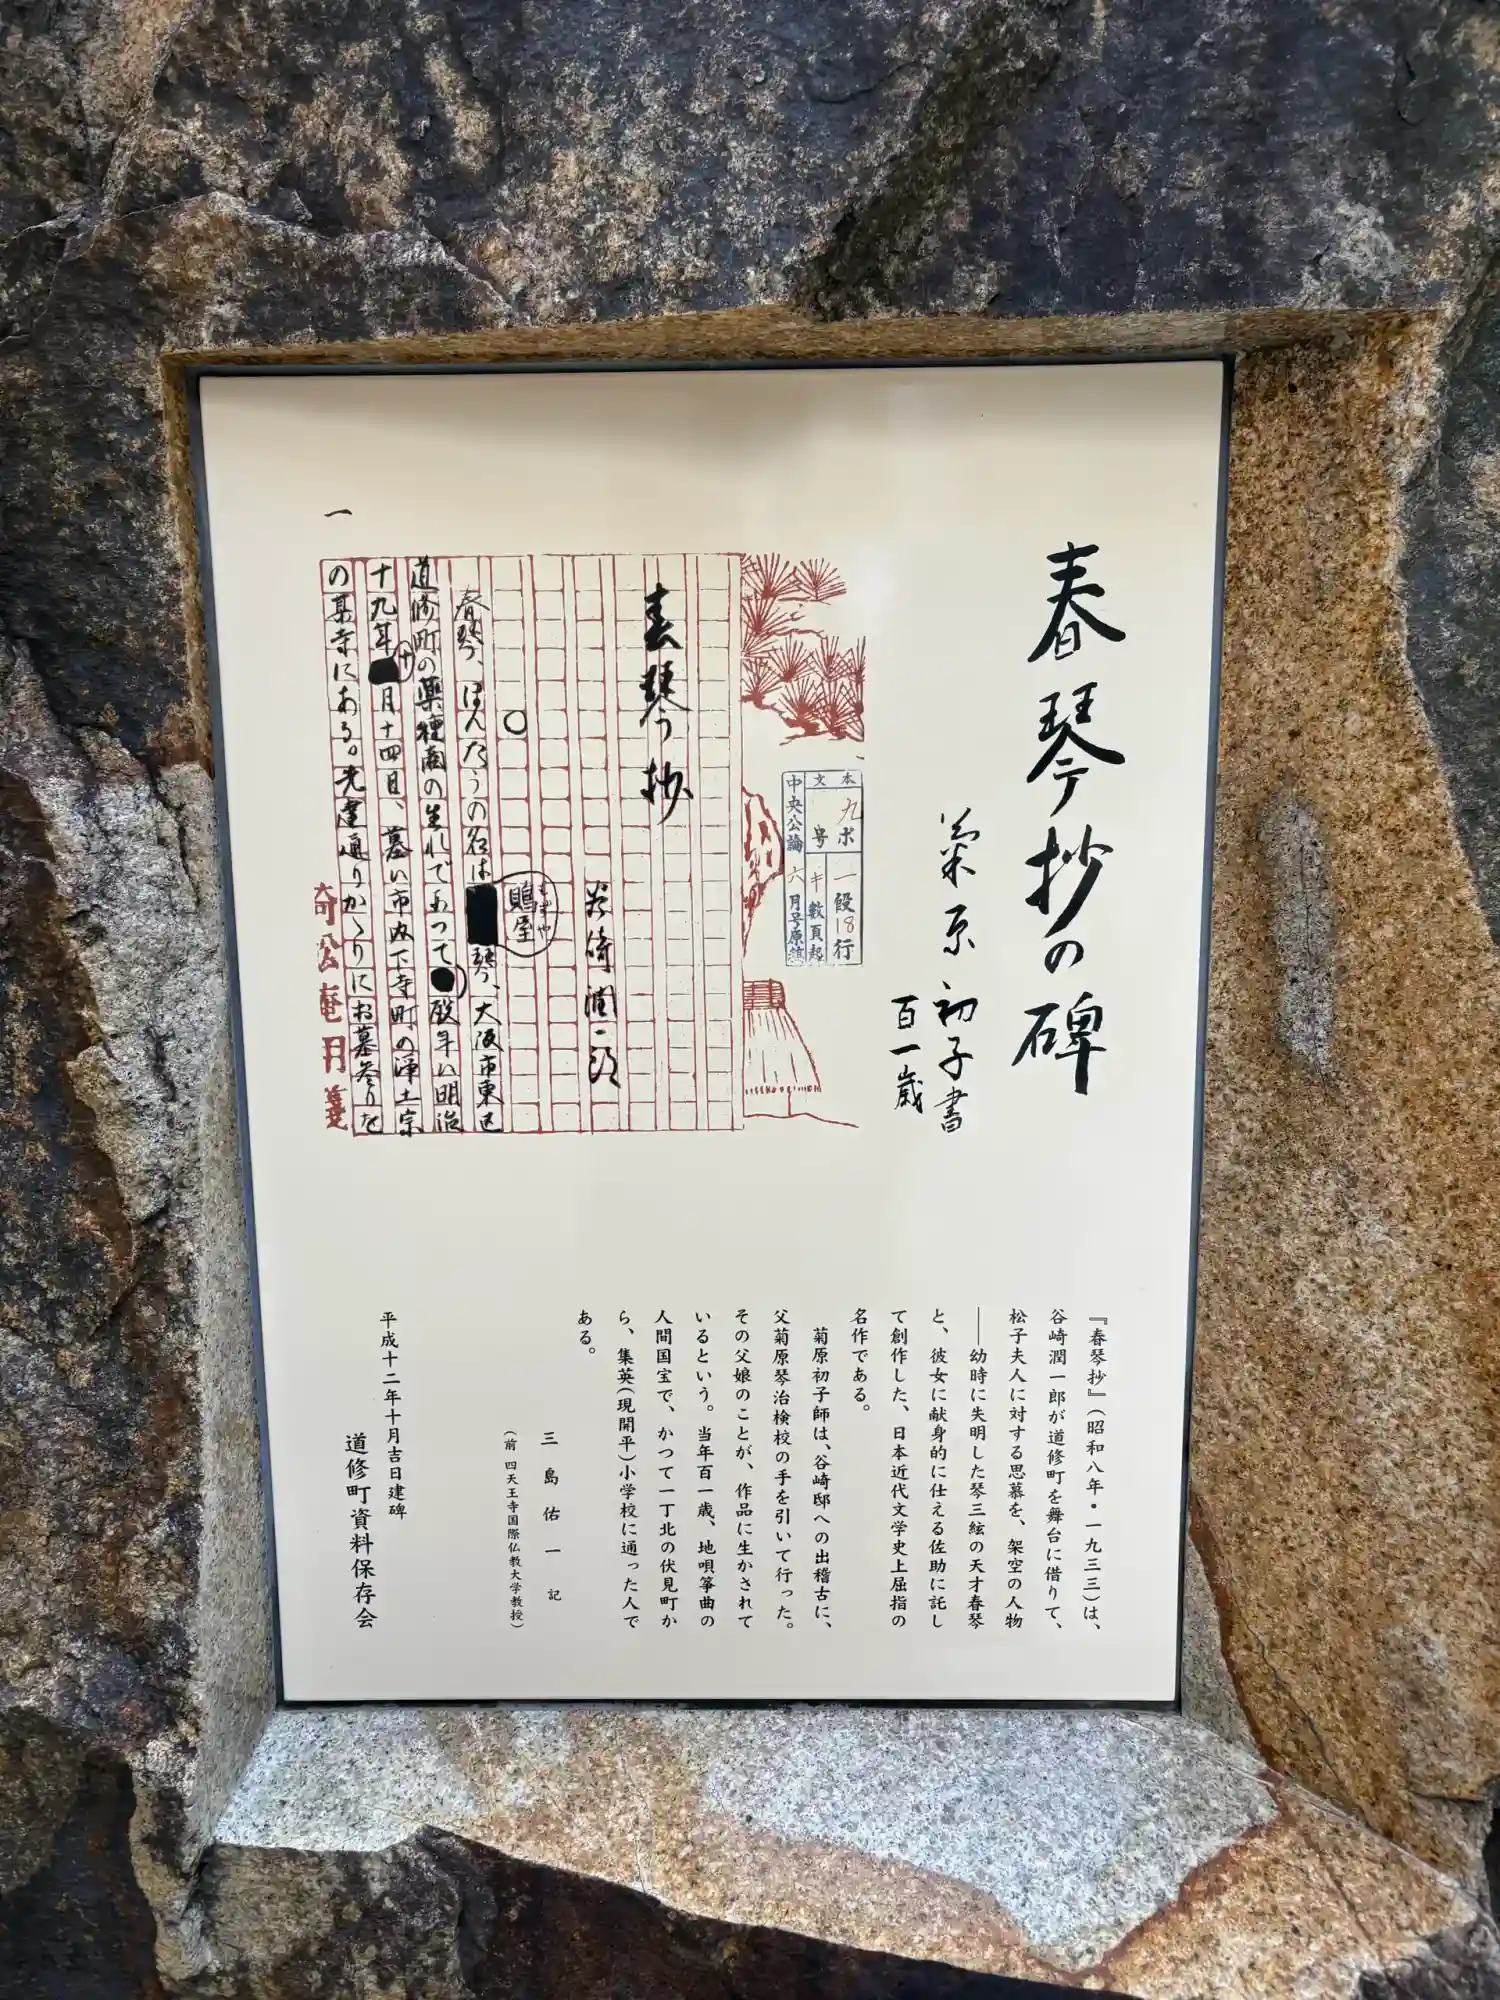 春琴抄の碑
菊原初子書
百一歳
本文
九ポ一段18行
号キ数頁起
中央公論六月号原稿
春琴抄
谷崎潤一郎
もずや
鵙屋
春琴、ほんたうの名は琴、大阪市東区
道修町の薬種商の生れであつて歿年は明治
十九年十月十四日、墓は市内下寺町の浄土宗
の某寺にある。先達通りかゝりにお墓参りを
一
倚松庵用箋
『春琴抄』(昭和八年・一九三三)は、
谷崎潤一郎が道修町を舞台に借りて、
松子夫人に対する思慕を、架空の人物
――幼時に失明した琴三絃の天才春琴
と、彼女に献身的に仕える佐助に託し
て創作した、日本近代文学史上屈指の
名作である。
菊原初子師は、谷崎邸への出稽古に、
父菊原琴治検校の手を引いて行った。
その父娘のことが、作品に生かされて
いるという。当年百一歳、地唄箏曲の
人間国宝で、かつて一丁北の伏見町か
ら、集英(現開平)小学校に通った人で
ある。
三島佑一 記
(前 四天王寺国際仏教大学教授)
平成十二年十月吉日建碑
道修町資料保存会